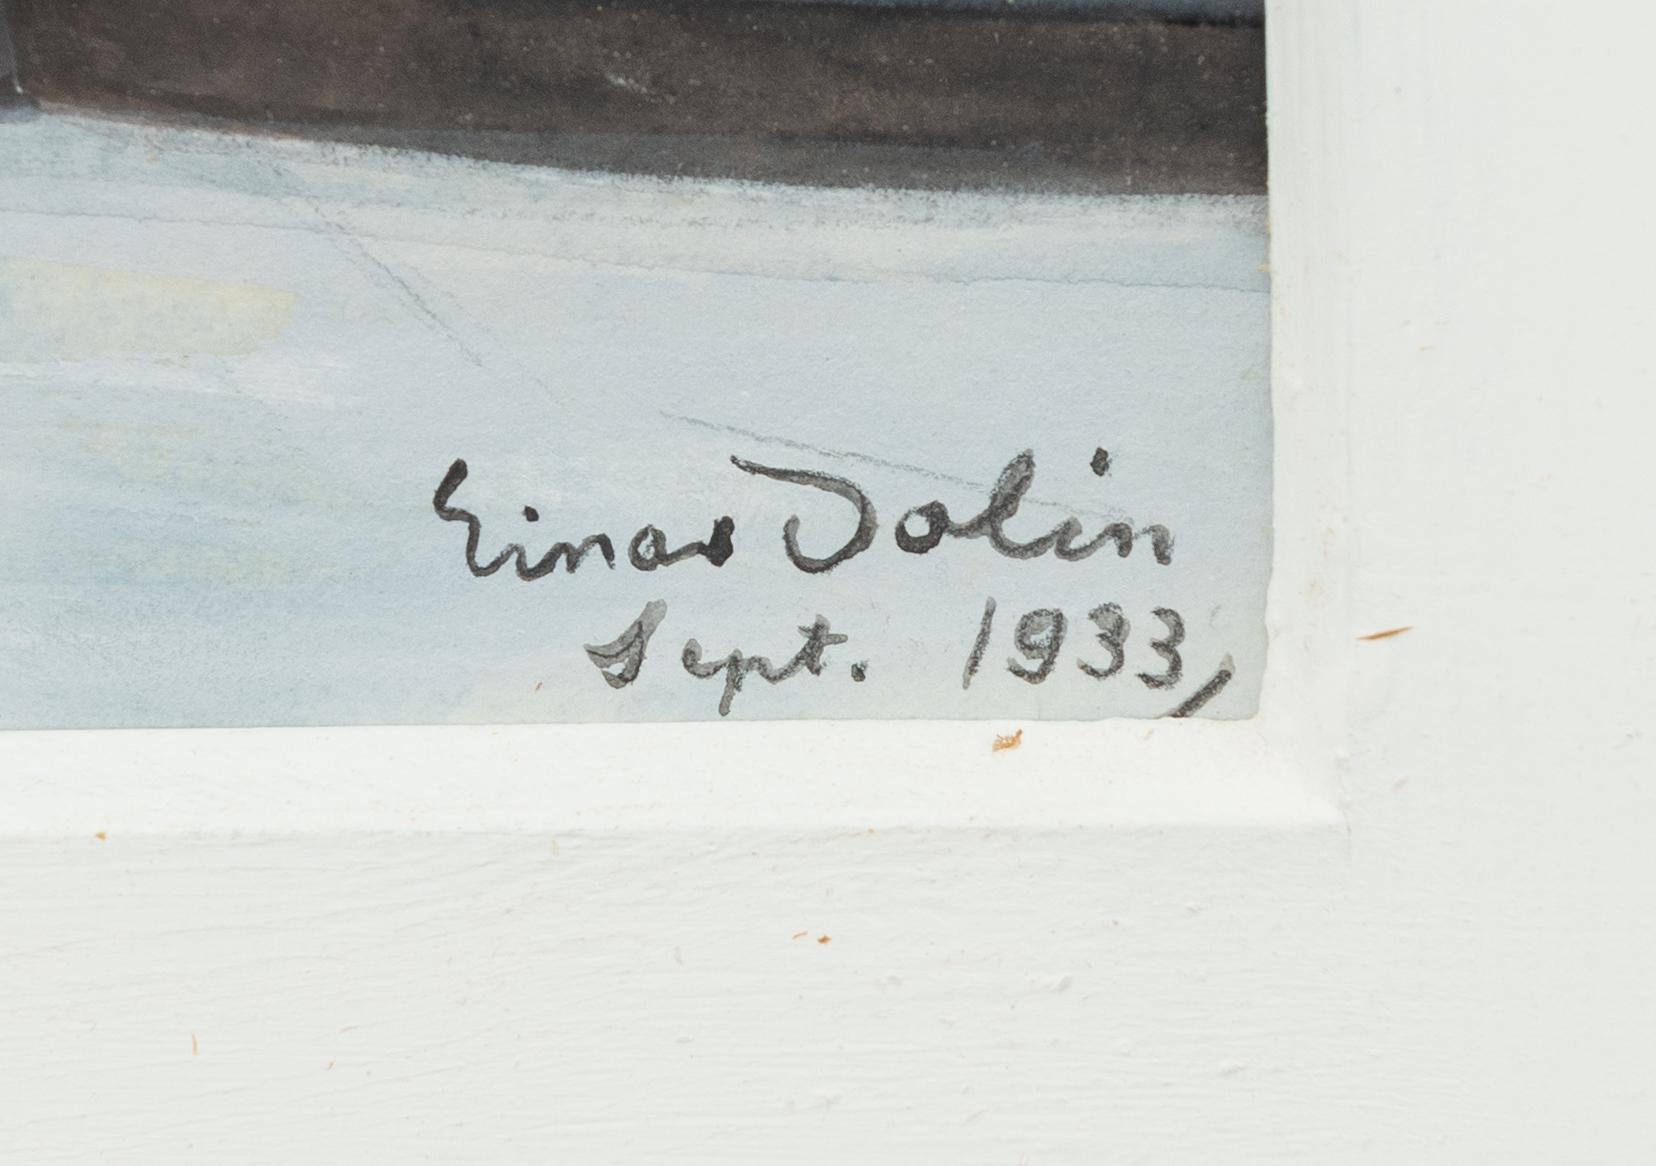 Einar Jolin
Sept. 1933,